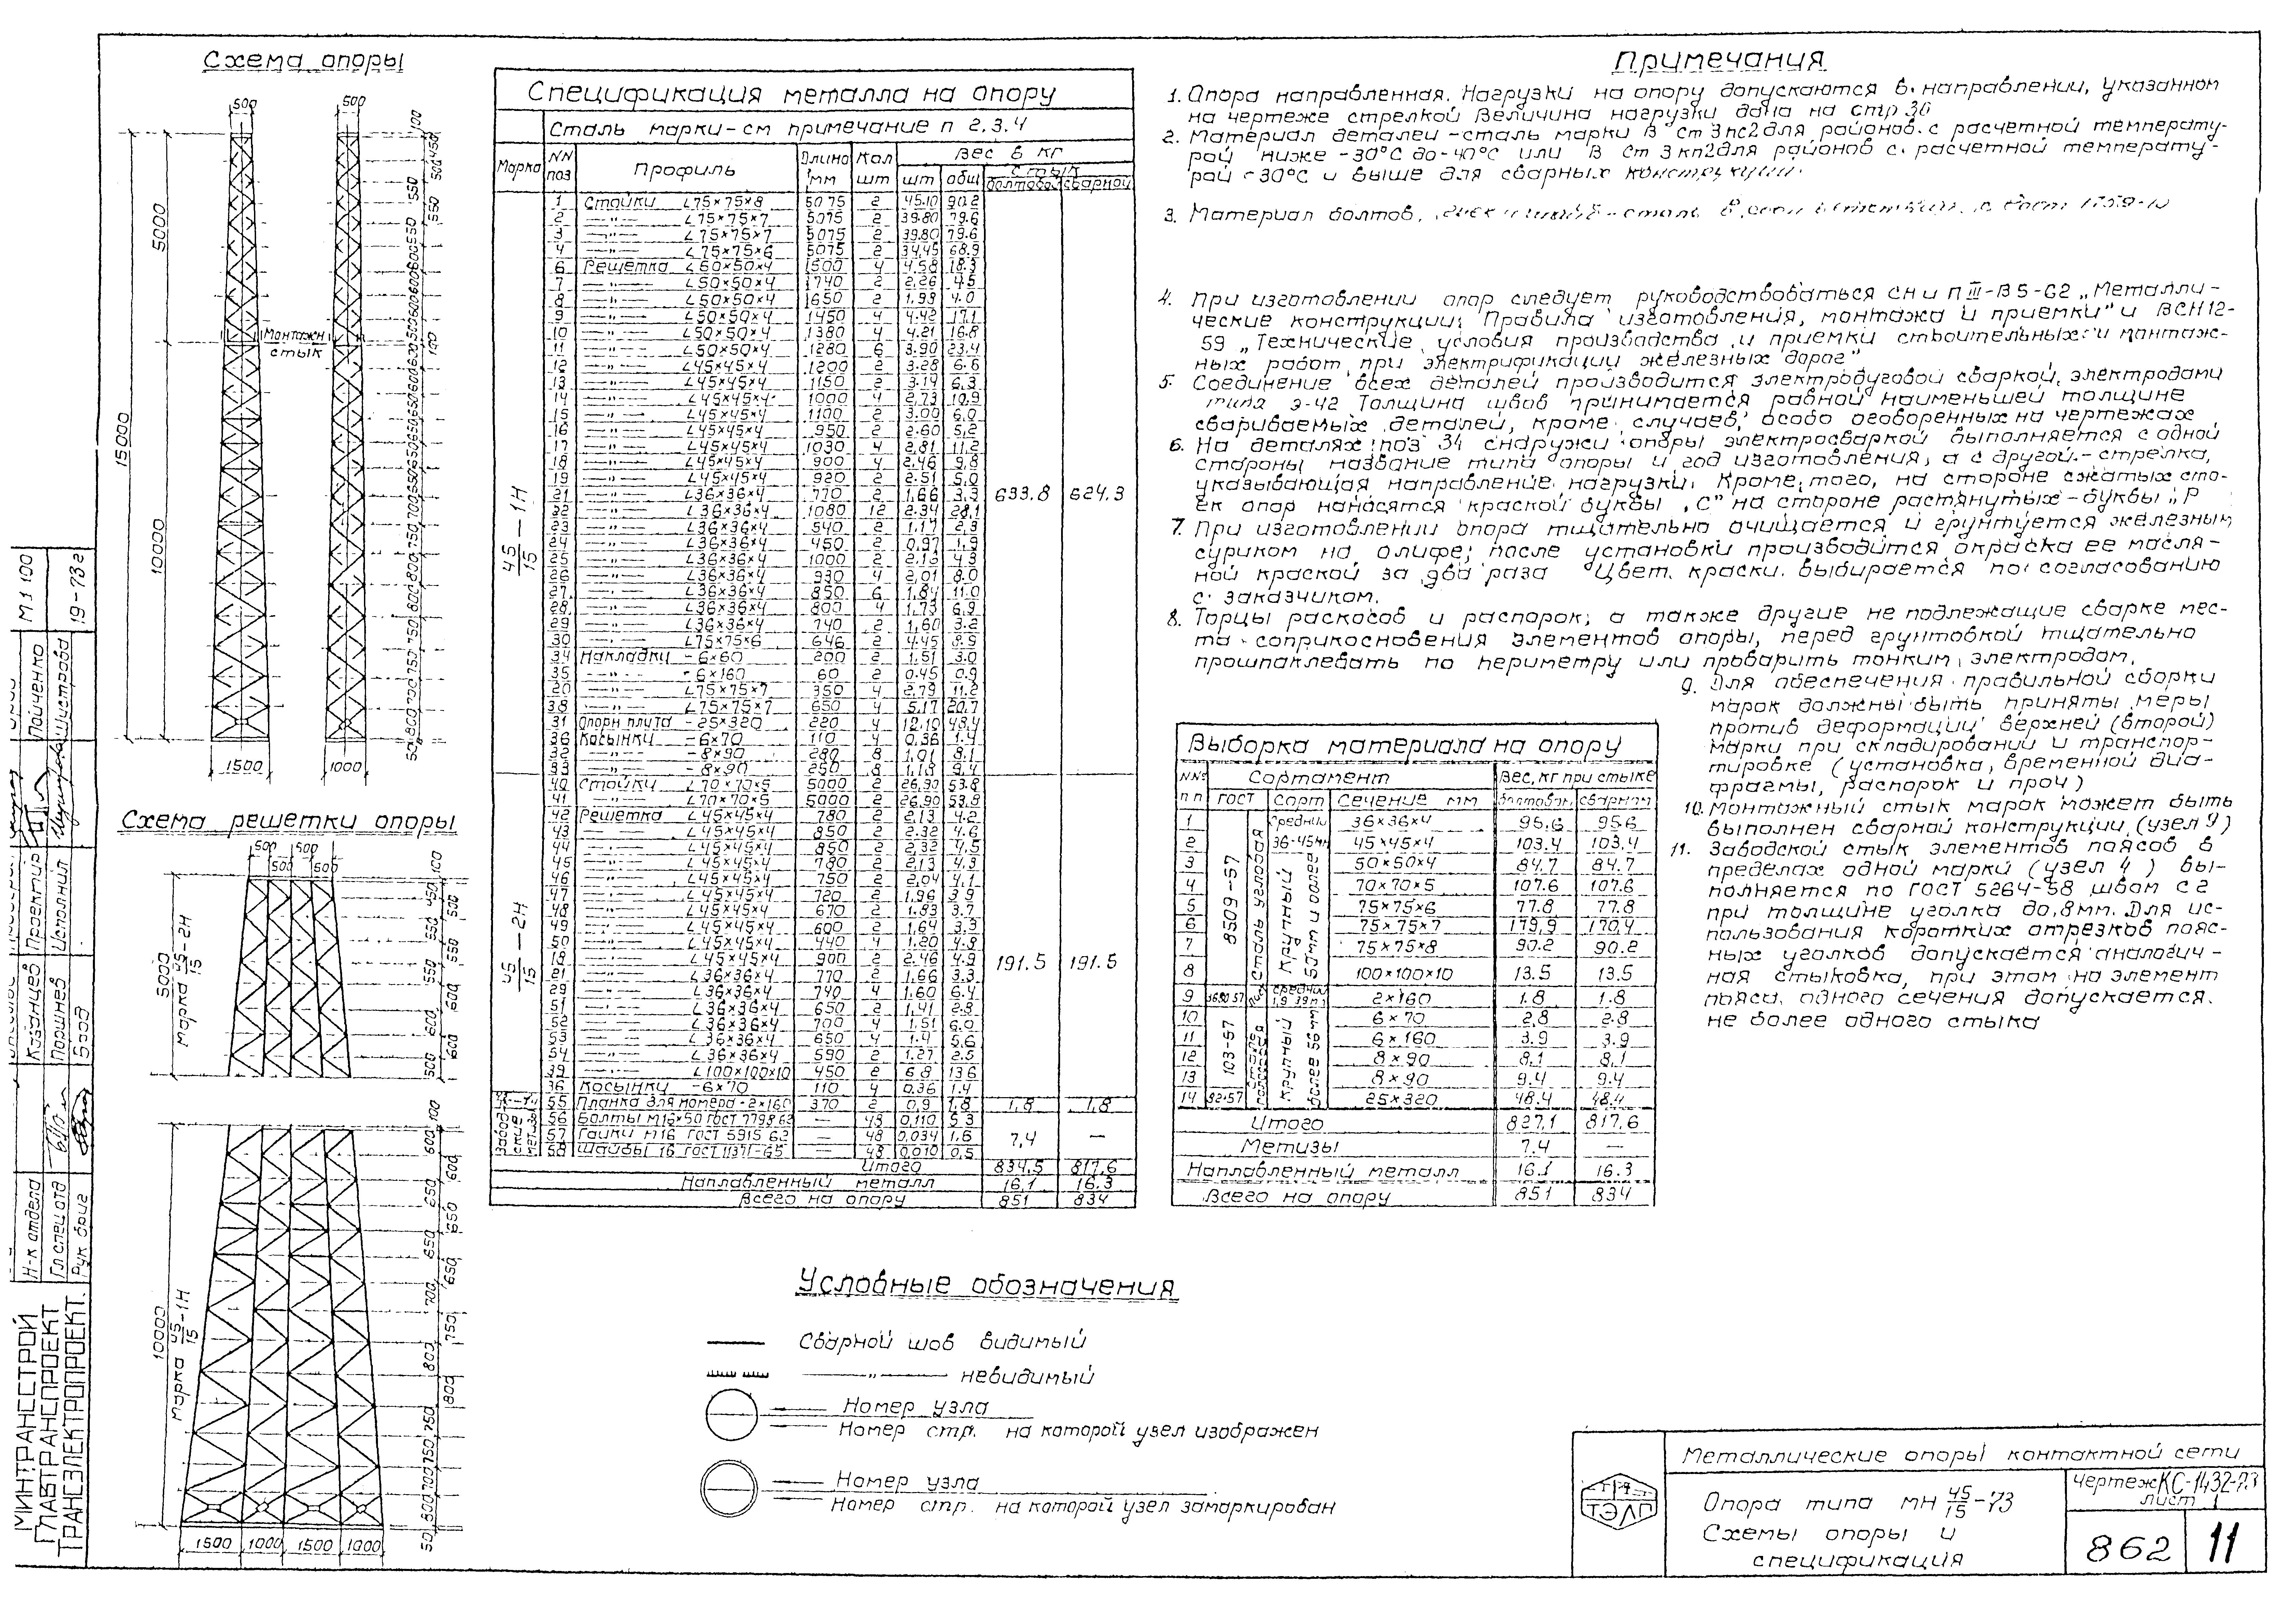 Схема опоры
500 500
5000
10000
15000
Монтажн
стык
1500 1000
Схема решетки опоры
500 500
500 500
5000
Марка 45/15-2Н
10000
Марка 45/15-1Н
1500 1000 1500 1000
Спецификация металла на опору
Сталь марки-см примечание п 2,3,4
Марка NN поз Профиль Длина мм Кол шт Вес в кг
шт общ стык болтовой сварной
45/15-1Н 633.8 624.3
1 Стойки L75×75×8 5075 2 45.10 90.2
2 —"— L75×75×7 5075 2 39.80 79.6
3 —"— L75×75×7 5075 2 39.80 79.6
4 —"— L75×75×6 5075 2 34.45 68.9
6 Решетка L50×50×4 1500 4 4.58 18.3
7 —"— L50×50×4 1740 2 2.26 4.5
8 —"— L50×50×4 1650 2 1.98 4.0
9 —"— L50×50×4 1450 4 4.42 17.1
10 —"— L50×50×4 1380 4 4.21 16.8
11 —"— L50×50×4 1280 6 3.90 23.4
12 —"— L45×45×4 1200 2 3.28 6.6
13 —"— L45×45×4 1150 2 3.14 6.3
14 —"— L45×45×4 1000 4 2.73 10.9
15 —"— L45×45×4 1100 2 3.00 6.0
16 —"— L45×45×4 950 2 2.60 5.2
17 —"— L45×45×4 1030 4 2.81 11.2
18 —"— L45×45×4 900 4 2.46 9.8
19 —"— L45×45×4 920 2 2.51 5.0
21 —"— L36×36×4 770 2 1.66 3.3
22 —"— L36×36×4 1080 12 2.34 28.1
23 —"— L36×36×4 540 2 1.17 2.3
24 —"— L36×36×4 450 2 0.97 1.9
25 —"— L36×36×4 1000 2 2.16 4.3
26 —"— L36×36×4 930 4 2.01 8.0
27 —"— L36×36×4 850 6 1.84 11.0
28 —"— L36×36×4 800 4 1.73 6.9
29 —"— L36×36×4 740 2 1.60 3.2
30 —"— L75×75×6 646 2 4.45 8.9
34 Накладки -6×60 200 2 1.51 3.0
35 —"— -6×160 60 2 0.45 0.9
20 —"— L75×75×7 350 4 2.79 11.2
38 —"— L75×75×7 650 4 5.17 20.7
31 Опорн плита -25×320 220 4 12.10 48.4
36 Косынки -6×70 110 4 0.36 1.4
32 —"— -8×90 280 8 1.01 8.1
33 —"— -8×90 250 8 1.18 9.4
45/15-2Н 191.5 191.5
40 Стойки L70×70×5 5000 2 26.90 53.8
41 —"— L70×70×5 5000 2 26.90 53.8
42 Решетка L45×45×4 780 2 2.13 4.2
43 —"— L45×45×4 850 2 2.32 4.6
44 —"— L45×45×4 850 2 2.32 4.5
45 —"— L45×45×4 780 2 2.13 4.3
46 —"— L45×45×4 750 2 2.04 4.1
47 —"— L45×45×4 720 2 1.96 3.9
48 —"— L45×45×4 670 2 1.83 3.7
49 —"— L45×45×4 600 2 1.64 3.3
50 —"— L45×45×4 440 4 1.20 4.8
18 —"— L45×45×4 900 2 2.46 4.9
21 —"— L36×36×4 770 2 1.66 3.3
29 —"— L36×36×4 740 4 1.60 6.4
51 —"— L36×36×4 650 2 1.41 2.8
52 —"— L36×36×4 700 4 1.51 6.0
53 —"— L36×36×4 650 4 1.4 5.6
54 —"— L36×36×4 590 2 1.27 2.5
39 —"— L100×100×10 450 2 6.8 13.6
36 Косынки -6×70 110 4 0.36 1.4
55 Планка для номера -2×160 370 2 0.9 1.8 1.8 1.8
56 Болты М16×50 ГОСТ 7798 62 — 48 0.110 5.3
57 Гайки М16 ГОСТ 5915 62 — 48 0.034 1.6 7,4 —
58 Шайбы 16 ГОСТ 11371-65 — 48 0.010 0.5
Итого 834.5 817.6
Наплавленный металл 16.1 16.3
Всего на опору 851 834
Примечания
1. Опора направленная. Нагрузки на опору допускаются в направлении, указанном
на чертеже стрелкой Величина нагрузки дана на стр 36
2. Материал деталей - сталь марки В Ст 3пс2 для районов с расчетной температу-
рой ниже -30°С до -40°С или В Ст 3кп2 для районов с расчетной температу-
рой -30°С и выше для сварных конструкций.
3. Материал болтов,
4. При изготовлении опор следует руководствоваться СН и П III-В 5-62 „Металли-
ческие конструкции; Правила изготовления, монтажа и приемки" и ВСН12-
59 „Технические условия производства и приемки строительных и монтаж-
ных работ при электрификации железных дорог"
5. Соединение всех деталей производится электродуговой сваркой, электродами
типа Э-42 Толщина швов принимается равной наименьшей толщине
свариваемых деталей, кроме случаев, особо оговоренных на чертежах
6. На деталях поз 34 снаружи опоры электросваркой выполняется с одной
стороны название типа опоры и год изготовления, а с другой - стрелка,
указывающая направление нагрузки. Кроме того, на стороне сжатых сто-
ек опор наносятся краской буквы „С" на стороне растянутых - буквы „Р
7. При изготовлении опора тщательно очищается и грунтуется железным
суриком на олифе; после установки производится окраска ее масля-
ной краской за два раза Цвет краски выбирается по согласованию
с заказчиком.
8. Торцы раскосов и распорок, а также другие не подлежащие сварке мес-
та соприкосновения элементов опоры, перед грунтовкой тщательно
прошпаклевать по периметру или проварить тонким электродом.
9. Для обеспечения правильной сборки
марок должны быть приняты меры
против деформации верхней (второй)
марки при складировании и транспор-
тировке (установка, временной диа-
фрагмы, распорок и проч)
10. Монтажный стык марок может быть
выполнен сварной конструкции (узел 9)
11. Заводской стык элементов поясов в
пределах одной марки (узел 4 ) вы-
полняется по ГОСТ 5264-58 швом С2
при толщине уголка до 8мм. Для ис-
пользования коротких отрезков пояс-
ных уголков допускается аналогич-
ная стыковка, при этом на элемент
пояса одного сечения допускается
не более одного стыка
Выборка материала на опору
NNº п п Сортамент Вес, кг при стыке
ГОСТ Сорт Сечение мм болтовом сварном
8509-57 Сталь угловая
1 средний 36×36×4 95.6 95.6
2 45×45×4 103.4 103.4
3 50×50×4 84.7 84.7
4 70×70×5 107.6 107.6
5 75×75×6 77.8 77.8
6 75×75×7 179,9 170,4
7 75×75×8 90.2 90.2
8 100×100×10 13.5 13.5
9 2×160 1.8 1.8
103-57
10 6×70 2.8 2.8
11 6×160 3.9 3.9
12 8×90 8.1 8.1
13 8×90 9.4 9.4
14 82-57 25×320 48.4 48.4
Итого 827,1 817,6
Метизы 7.4 —
Наплавленный металл 16.1 16.3
Всего на опору 851 834
Условные обозначения
Сварной шов видимый
—"— невидимый
Номер узла
Номер стр. на которой узел изображен
Номер узла
Номер стр. на которой узел замаркирован
МИНТРАНССТРОЙ
ГЛАВТРАНСПРОЕКТ
ТРАНСЭЛЕКТРОПРОЕКТ
Н-к отдела
Гл спец отд
Рук бриг
Казанцев
Поршнев
Брод
Проектир
Исполнил
Пайченко
Шустрова
М 1 100
19-73 г
ТЭЛП
Металлические опоры контактной сети
Опора типа МН 45/15-73
Схемы опоры и
спецификация
Чертеж КС-1432-73
лист 1
862 11